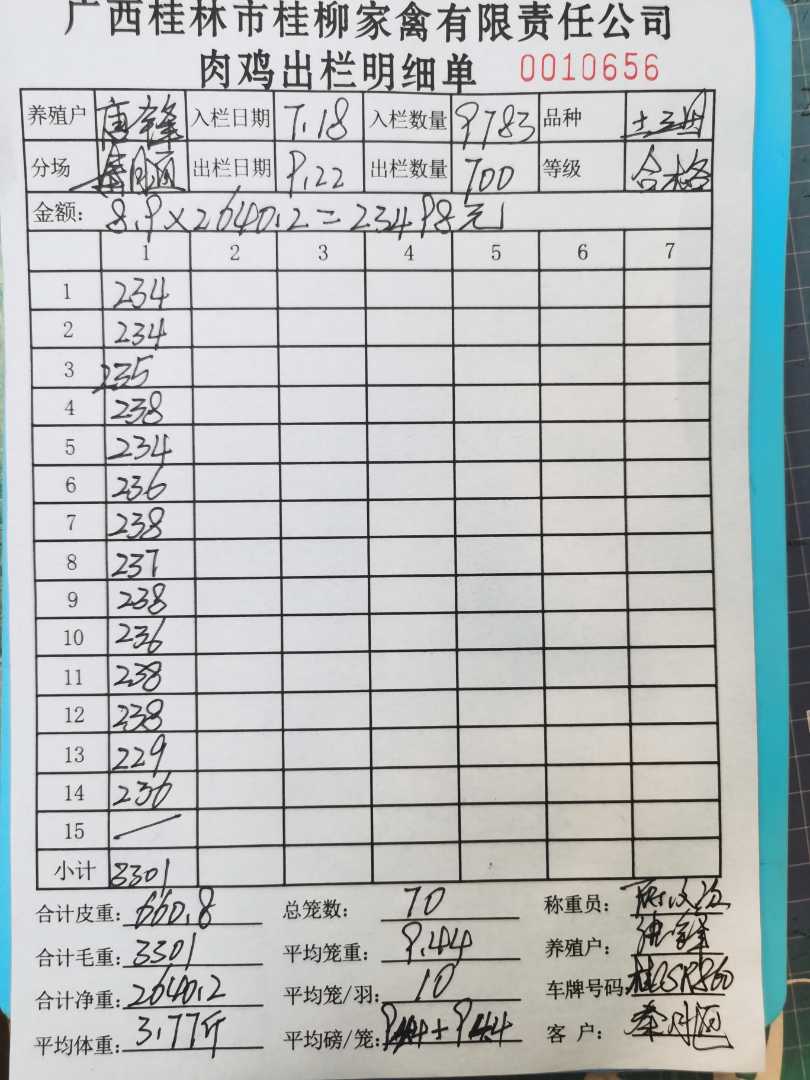 广西桂林市桂柳家禽有限责任公司
肉鸡出栏明细单 0010656
养殖户 唐锋 入栏日期 7.18 入栏数量 9783 品种
分场 出栏日期 9.22 出栏数量 700 等级 合格
金额: 8.9×2640.2=23498元
1 2 3 4 5 6 7
1 234
2 234
3 235
4 238
5 234
6 236
7 238
8 237
9 238
10 236
11 238
12 238
13 229
14 236
15 /
小计 3301
合计皮重: 660.8 总笼数: 70 称重员:
合计毛重: 3301 平均笼重: 9.44 养殖户:
合计净重: 2640.2 平均笼/羽: 10 车牌号码:
平均体重: 3.77斤 平均磅/笼: +9.44 客 户: